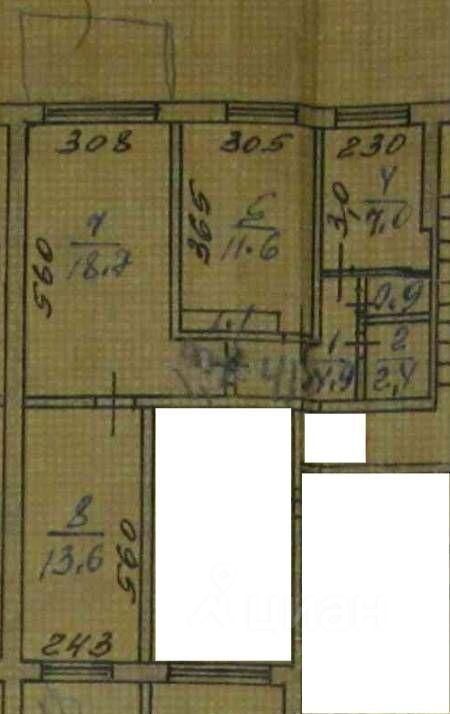 308 305 230
7
18,7
560
365
6
11.6
310
4
7,0
1,1
0,9
1
4,9
2
2,4
8
13,6
560
243
циан